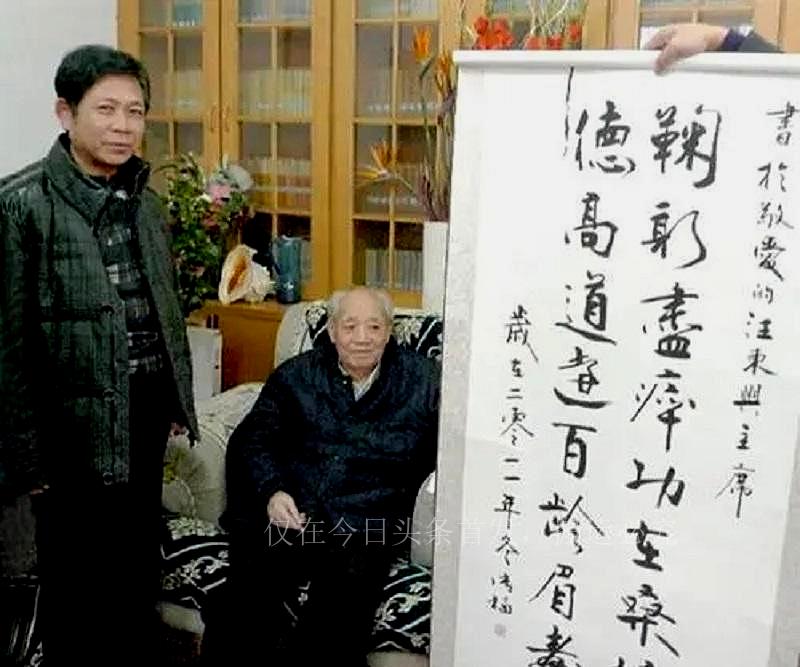 書於敬愛的汪東興主席
鞠躬盡瘁功在桑
德高道百齡眉壽
歲在二零一一年冬
仅在今日头条首发